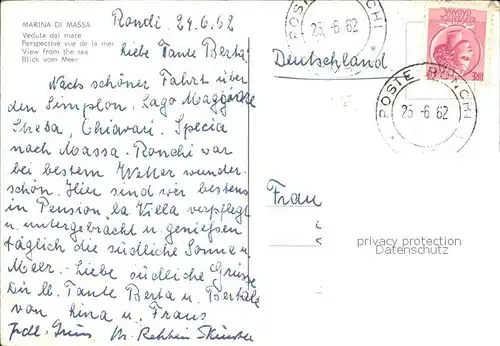 MARINA DI MASSA
Veduta dal mare
Perspective vue de la mer
View from the sea
Blick vom Meer
Ronchi, 24.6.62
Liebe Tante Berta!
Nach schöner Fahrt über
den Simplon, Lago Maggiore
Stresa, Chiavari, Specia
nach Massa-Ronchi war
bei bestem Wetter wunder-
schön. Hier sind wir bestens
in Pension la Villa verpflegt
u. untergebracht u. genießen
täglich die südliche Sonne u.
Meer. Liebe südliche Grüsse
Dir lb. Tante Berta u. Bertele
von Lina u. Franz
Frdl. Grüss
POSTE RONCHI
25-6 62
Deutschland
POSTE RONCHI
25-6 62
Frau
privacy protection
Datenschutz